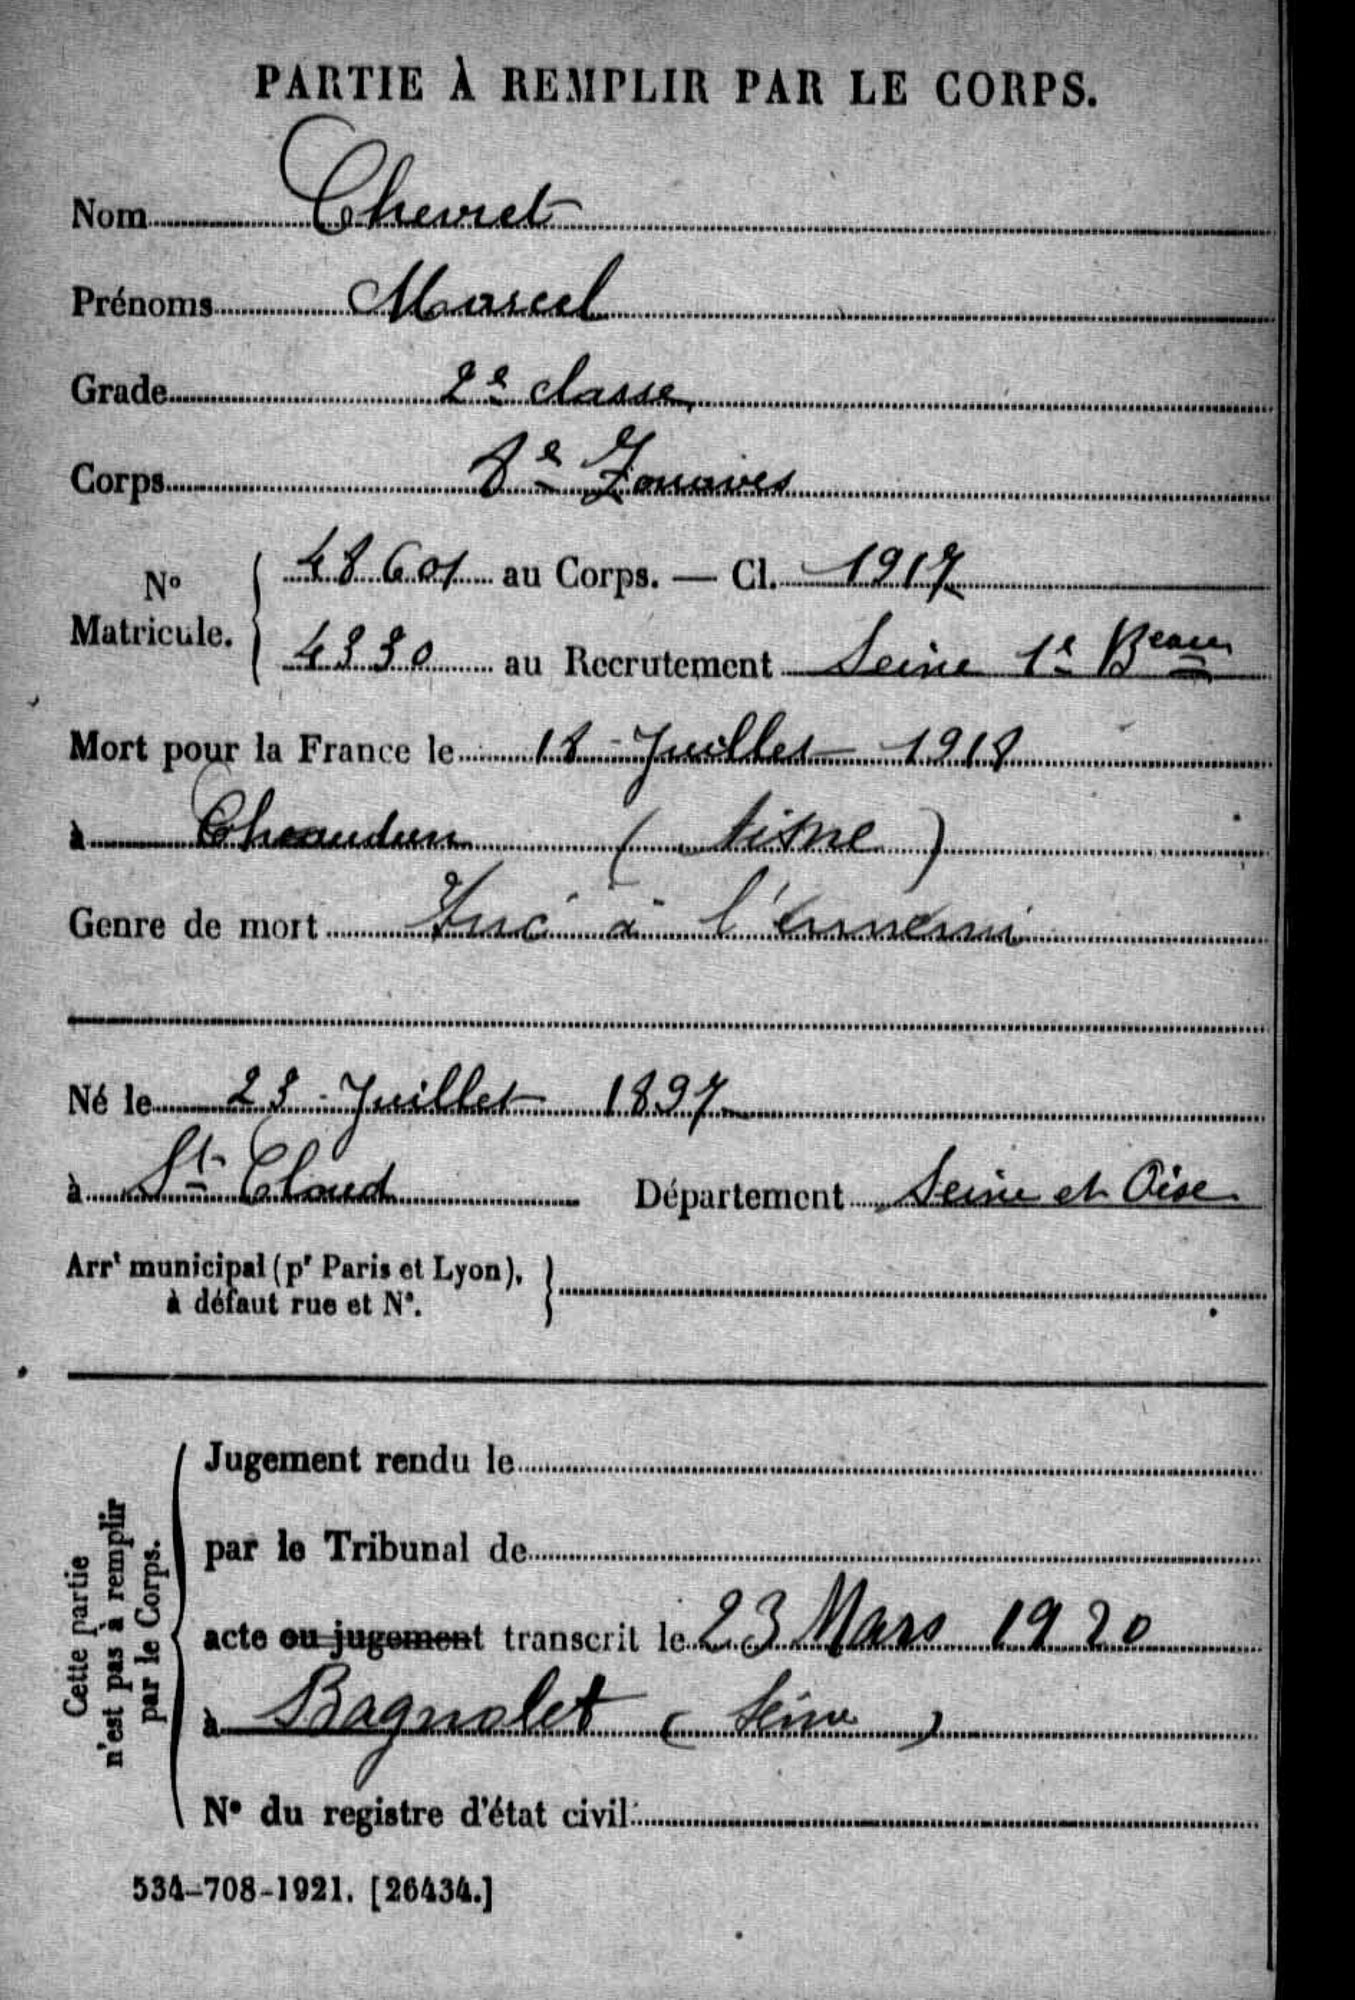 PARTIE À REMPLIR PAR LE CORPS.
Nom Chevret
Prénoms Marcel
Grade 2e classe
Corps 8e Zouaves
N° Matricule. { 48601 au Corps. — Cl. 1917
4330 au Recrutement Seine 1e Beau
Mort pour la France le 18 Juillet 1918
à Chaudun (Aisne)
Genre de mort Tué à l'ennemi
Né le 23 Juillet 1897
à St Cloud Département Seine et Oise
Arrt municipal (pr Paris et Lyon),
à défaut rue et N°.
Cette partie
n'est pas à remplir
par le Corps.
Jugement rendu le
par le Tribunal de
acte ou jugement transcrit le 23 Mars 1920
à Bagnolet (Seine)
N° du registre d'état civil
534-708-1921. [26434.]